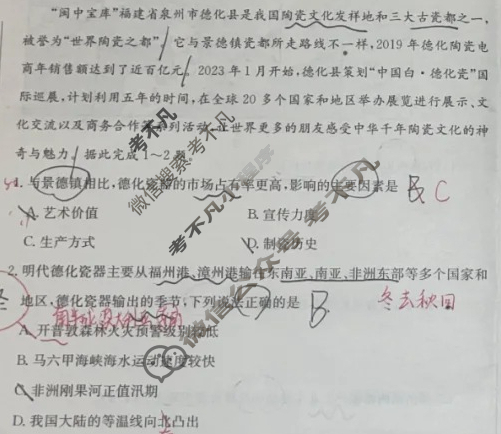 “闽中宝库”福建省泉州市德化县是我国陶瓷文化发祥地和三大古瓷都之一,
被誉为“世界陶瓷之都”,它与景德镇瓷都所走路线不一样,2019年德化陶瓷电
商年销售额达到了近百亿元。2023年1月开始,德化县策划“中国白·德化瓷”国
际巡展,计划利用五年的时间,在全球20多个国家和地区举办展览进行展示、文
化交流以及商务合作等系列活动,让世界更多的朋友感受中华千年陶瓷文化的神
奇与魅力。据此完成1~2题。
1. 与景德镇相比,德化瓷器的市场占有率更高,影响的主要因素是 B C
A. 艺术价值 B. 宣传力度
C. 生产方式 D. 制瓷历史
2. 明代德化瓷器主要从福州港、漳州港输往东南亚、南亚、非洲东部等多个国家和
地区,德化瓷器输出的季节,下列说法正确的是 B 冬去秋回
A. 开普敦森林火灾预警级别较低
B. 马六甲海峡海水运动速度较快
C. 非洲刚果河正值汛期
D. 我国大陆的等温线向北凸出
微信搜索《考不凡》小程序
微信公众号:考不凡